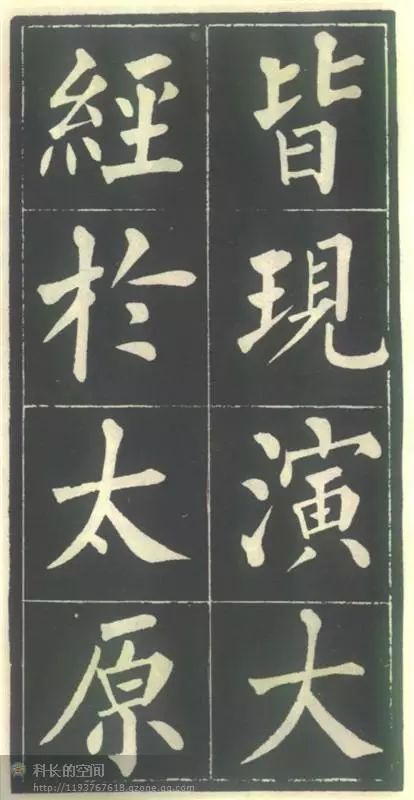 皆現演大
經於太原
科长的空间
http://1193767618.qzone.qq.com